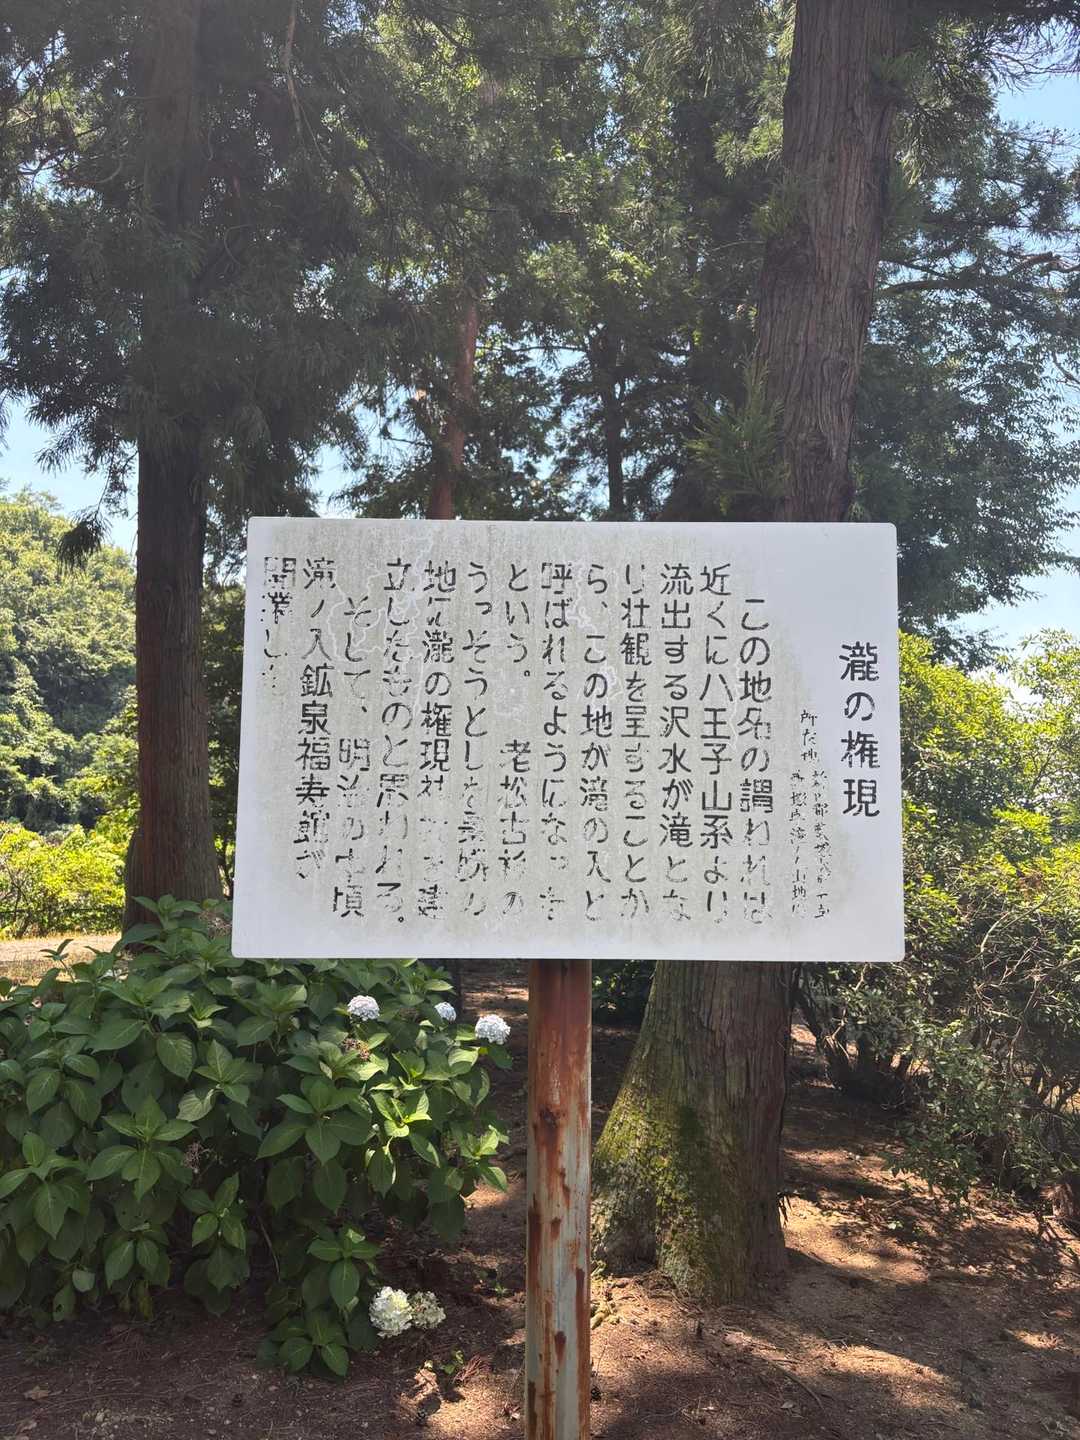 瀧の権現
所在地
この地名の謂われは
近くに八王子山系より
流出する沢水が滝とな
り壮観を呈することか
ら、この地が滝の入と
呼ばれるようになった
という。 老松古杉の
うっそうとした
地に瀧の権現社 を建
立したものと思われる。
そして、明治の 頃
滝ノ入鉱泉福寿館が
開業した